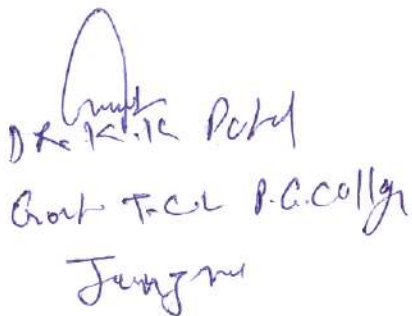 Dr. K. K. Patel
Govt T.C.L P.G. College
Janjgir